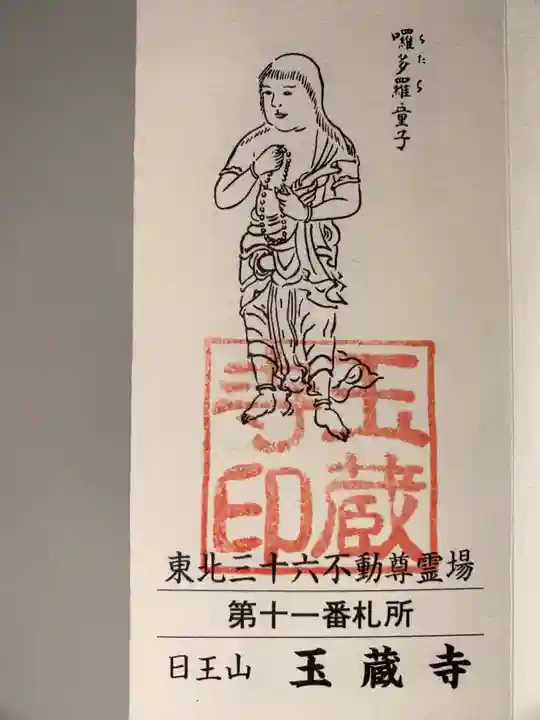 囉多羅童子
らたら
玉蔵
寺印
東北三十六不動尊霊場
第十一番札所
日王山 玉蔵寺